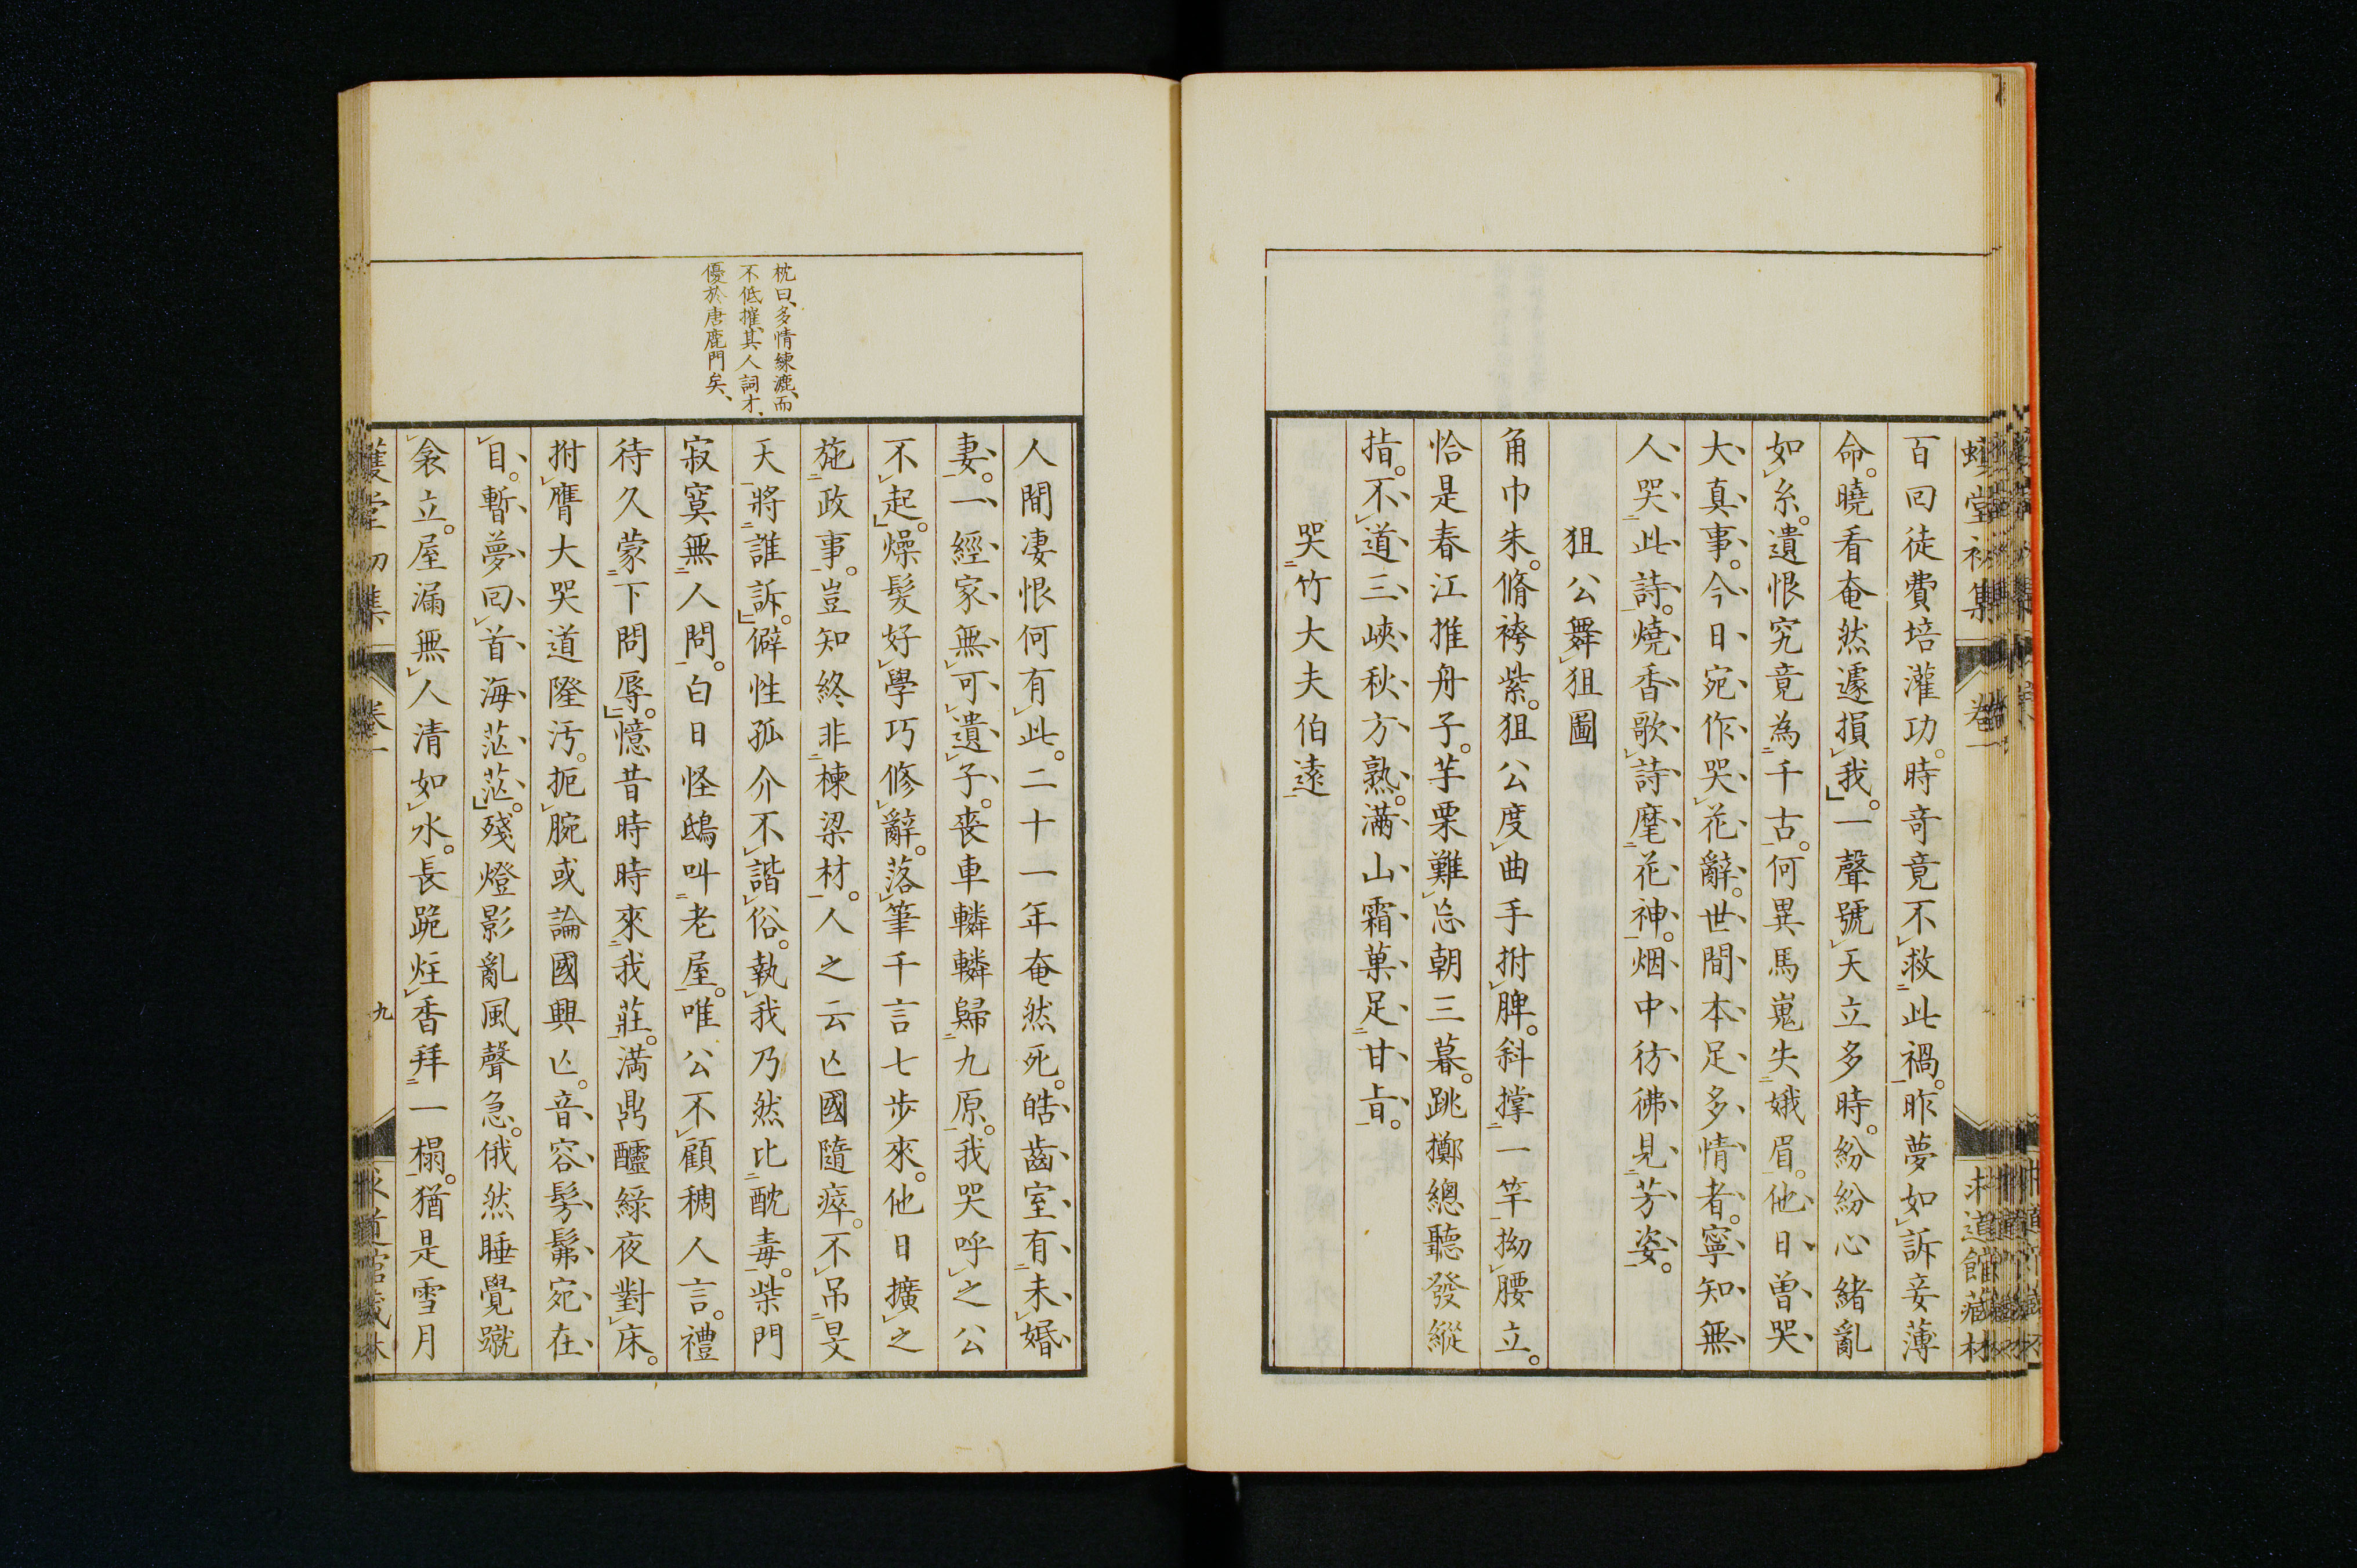 百回徒費培灌功。時奇竟不救此禍。昨夢如訴妾薄
命。曉看奄然遽損我。一聲號天立多時。紛紛心緒亂
如糸。遺恨究竟為千古。何異馬嵬失娥眉。他日曾哭
大真事。今日宛作哭花辭。世間本足多情者。寧知無
人哭此詩。燒香歌詩麾花神。烟中彷彿見芳姿。
狙公舞狙圖
角巾朱。脩袴紫。狙公度曲手拊脾。斜撑一竿拗腰立。
恰是春江推舟子。芋栗難忘朝三暮。跳擲總聽發縱
指。不道三峽秋方熟。滿山霜菓足甘旨。
哭竹大夫伯遠
枕曰、多情練漉、而
不低摧、其人詞才、
優於唐鹿門矣、
人間凄恨何有此。二十一年奄然死。皓齒室有未婚
妻。一經家無可遺子。喪車轔轔歸九原。我哭呼之公
不起。燥髮好學巧修辭。落筆千言七步來。他日擴之
施政事。豈知終非棟梁材。人之云亡國隨瘁。不吊旻
天將誰訴。僻性孤介不諧俗。執我乃然比酖毒。柴門
寂寞無人問。白日怪鴟叫老屋。唯公不顧稠人言。禮
待久蒙下問辱。憶昔時時來我莊。満鼎醽綠夜對床。
拊膺大哭道隆汚。扼腕或論國興亡。音容髣髴宛在
目。暫夢回首海茫茫。殘燈影亂風聲急。俄然睡覺蹴
衾立。屋漏無人清如水。長跪炷香拜一榻。猶是雪月
九